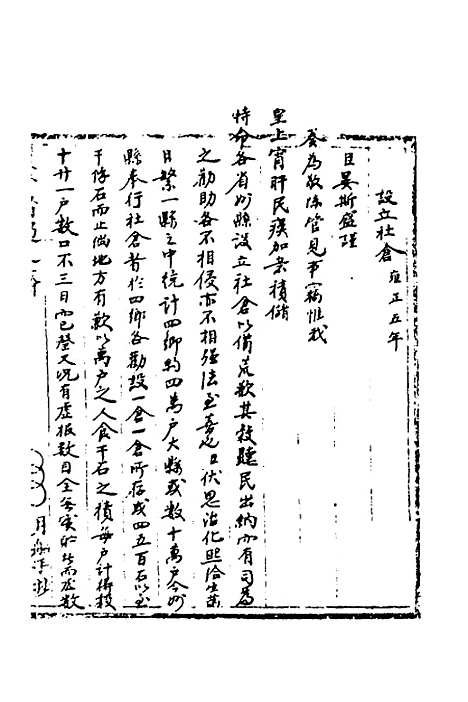 設立社倉 雍正五年
臣晏斯盛謹
奏為敬陳管見事竊惟我
皇上宵旰民瘼加意積儲
特命各省州縣設立社倉以備荒歉其敖聽民出納而有司為
之勸助各不相侵亦不相強法至善也臣伏思治化熙洽生齒
日繁一縣之中統計四鄉約四萬戶大縣或數十萬戶今州
縣奉行社倉者於四鄉各勸設一倉一倉所存或四五百石以至
千餘石而止倘地方有歉以萬戶之人食千石之積每戶計僅投
十廿一戶數口不三日而已罄又況有虛報數目全無實貯者而及散